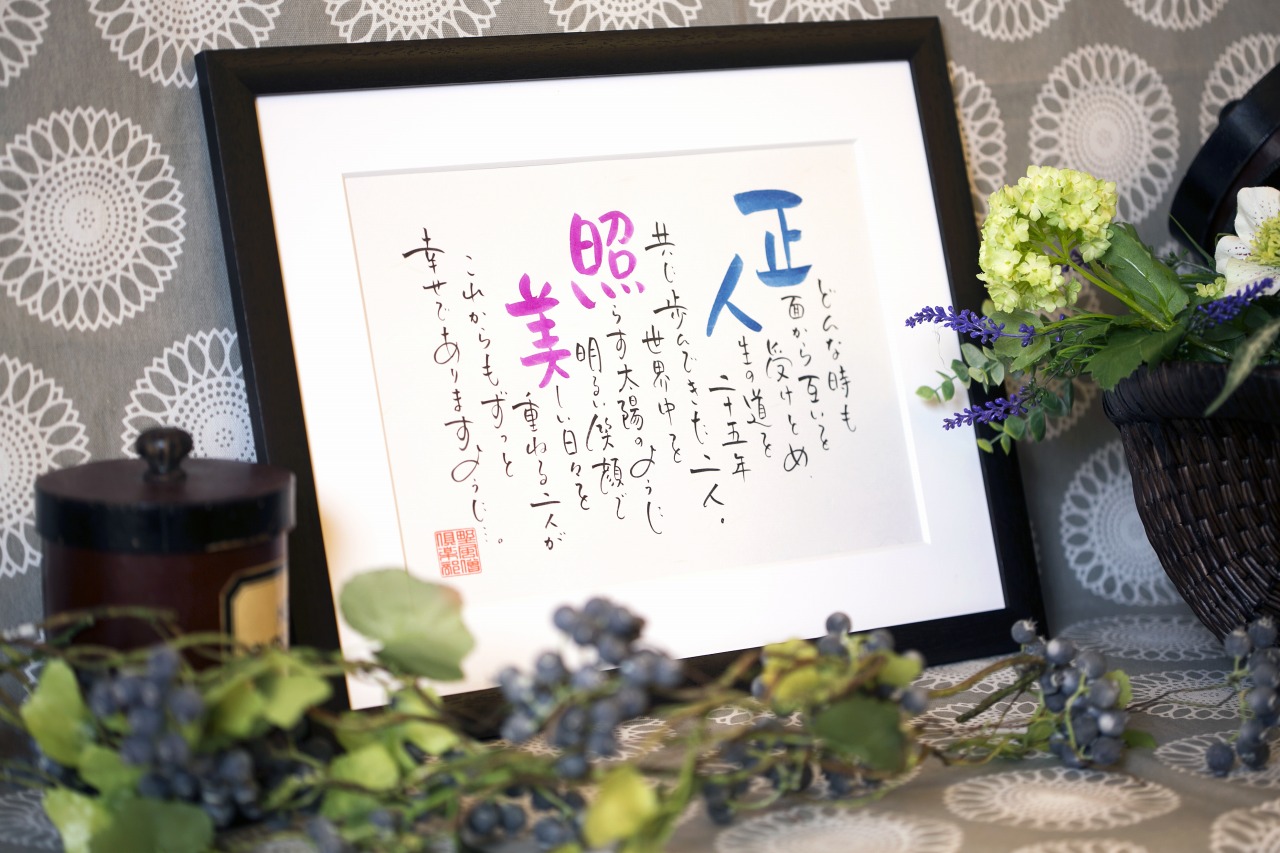 どんな時も
正面から互いを
受けとめ
人生の道を
二十五年
共に歩んできた二人。
世界中を
照らす太陽のように
明るい笑顔で
美しい日々を
重ねる二人が
これからもずっと
幸せでありますように…。